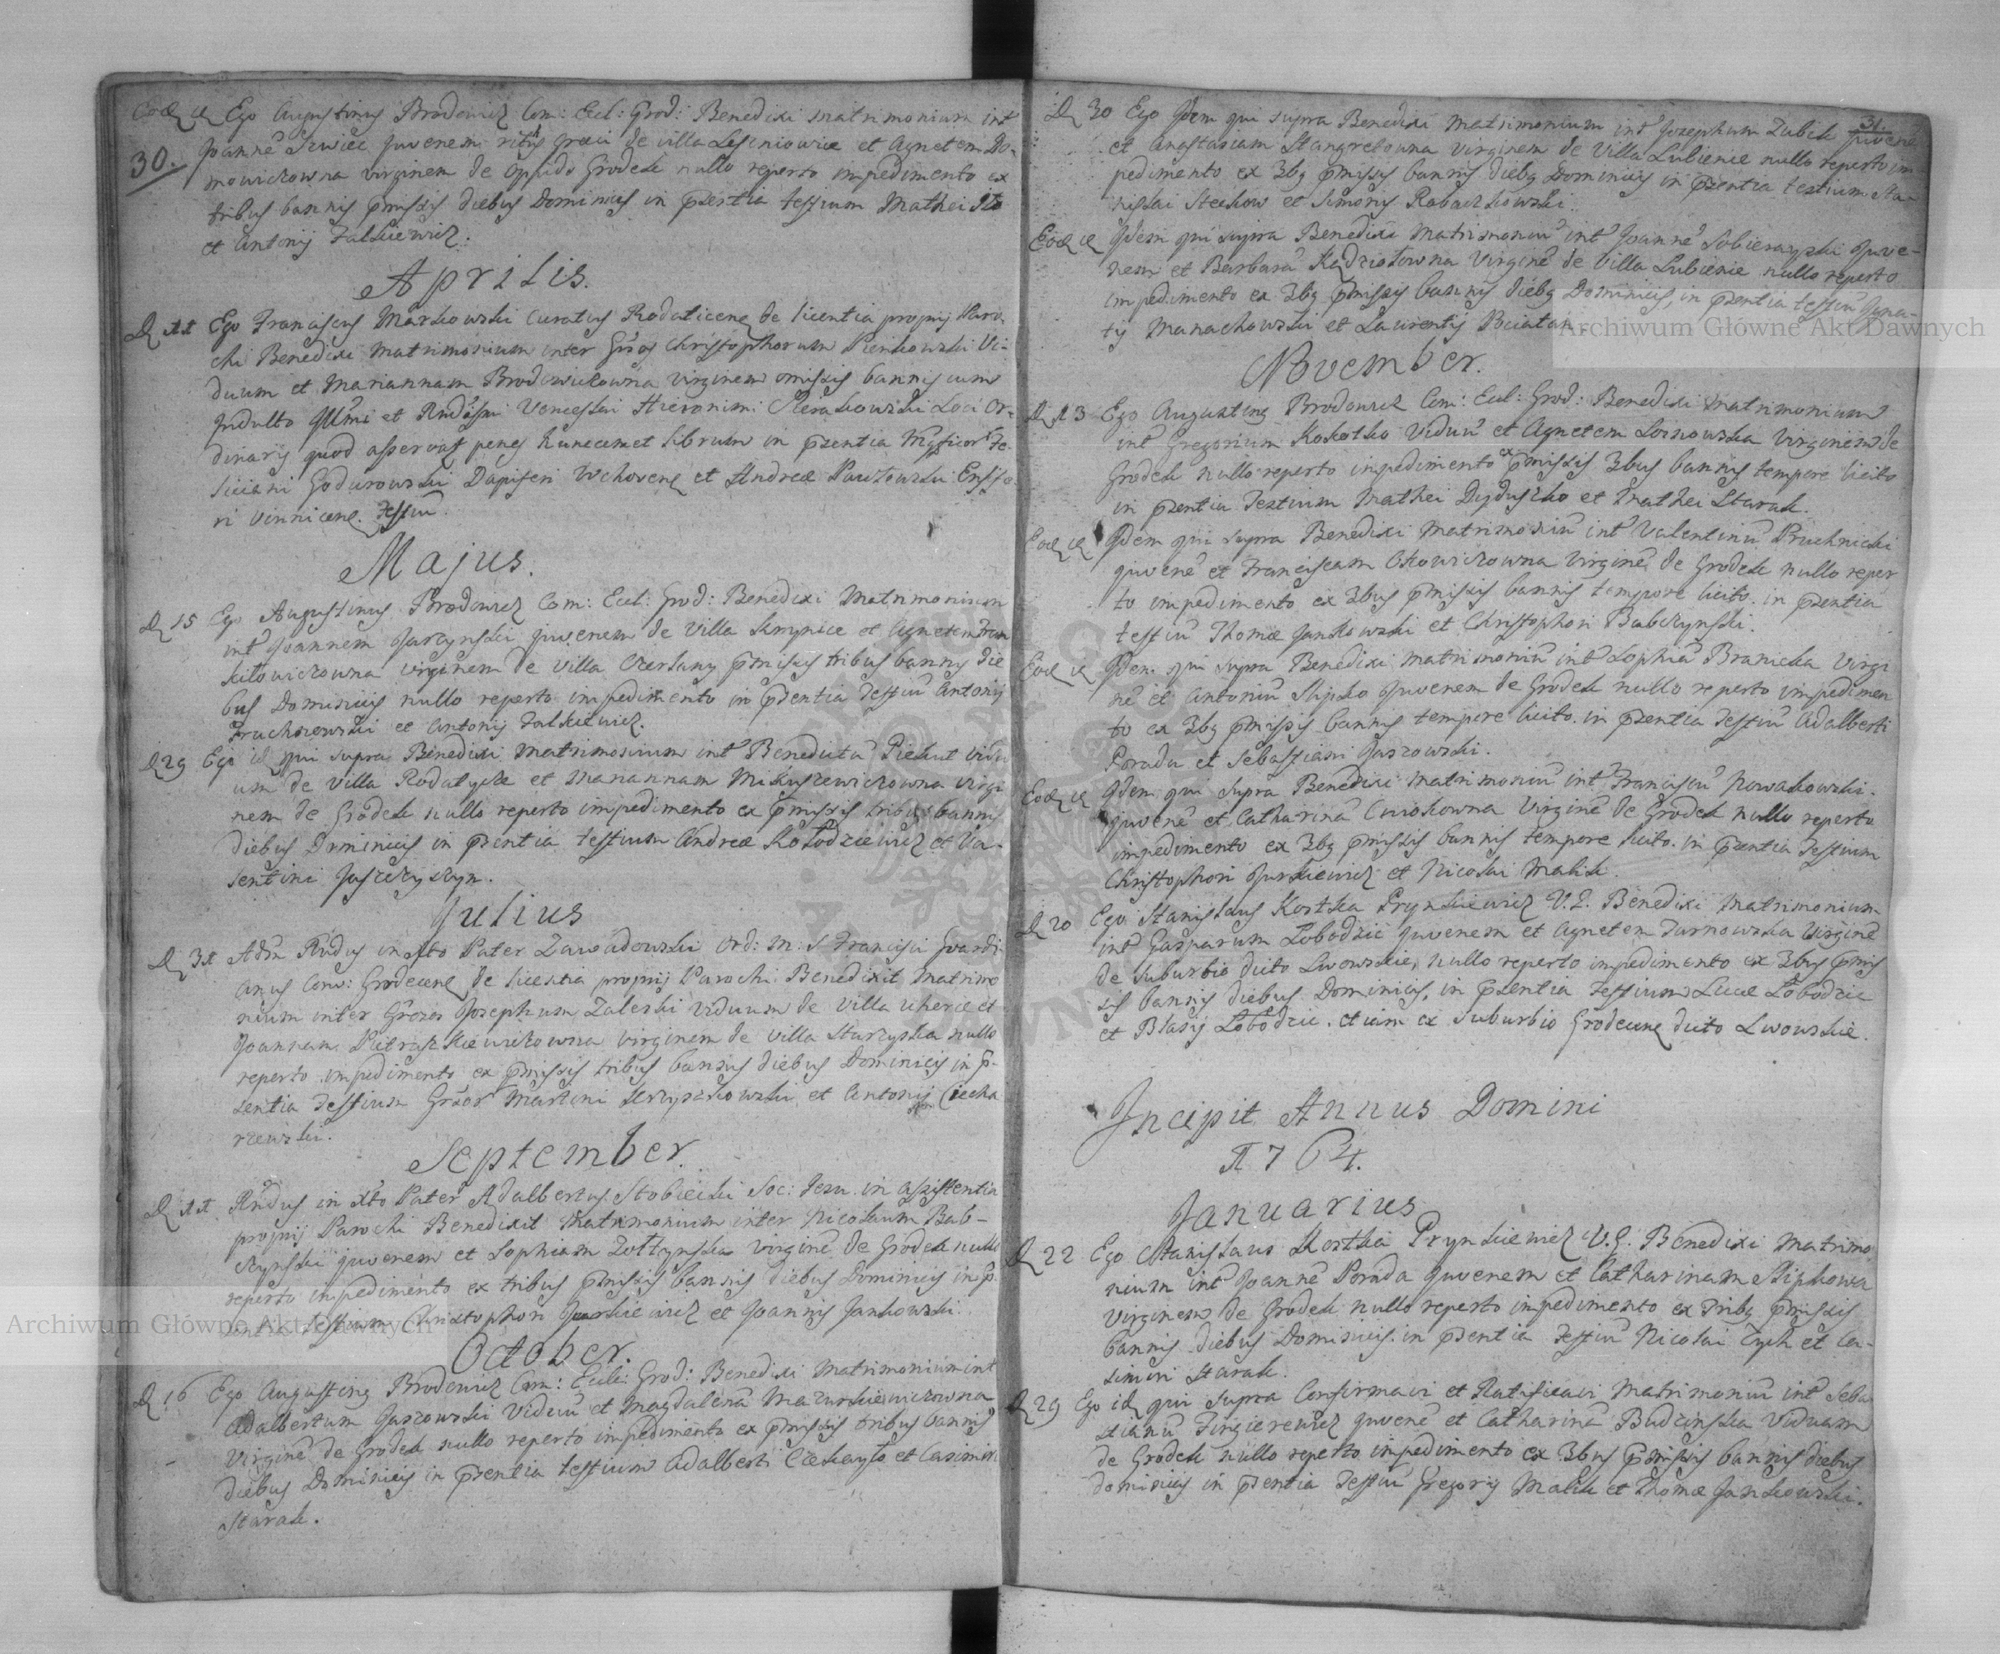 30.
Ego Augustinus Brodowicz Com: Eccl: Grod: Benedixi matrimonium int
Joannē Szwiec juvenem ritus graeci de villa Lesniowice et Agnetem Do-
mowiczowna virginem de oppido Grodek nullo reperto impedimento ex
tribus bannis pmissis diebus Dominicis in psentia testium Mathei
et Antonij Falkiewicz.
Aprilis.
D 11 Ego Franciscus Markowski Curatus Rodaticen de licentia proprij Paro-
chi Benedixi Matrimonium inter Christophorum Pienkowski Vi-
duum et Mariannam Brodowiczowna virginem omissis bannis cum
Indulto Illmi et Rndssmi Venceslai Hieronimi Sierakowski Loci Or-
dinarij quod asservat penes huncemet librum in psentia Fe-
liciani Godurowski Dapiferi Wchoven et Andreae Pawłowski Ensife-
ri Vinnicen. Testiū.
Majus.
D 15 Ego Augustinus Brodowicz Com: Eccl: Grod: Benedixi Matrimonium
int Joannem Jarzynski juvenem de Villa et Agnetem Fran
kiłowiczowna virginem de Villa Czerlany pmissis tribus bannis die
bus Dominicis nullo reperto impedimento in psentia Testiū Antonij
et Antonij Falkiewicz.
D 29 Ego id qui supra Benedixi Matrimonium int Benedictū Piekut vidu
um de Villa Rodatycze et Mariannam virgi
nem de Grodek nullo reperto impedimento ex pmissis tribus bannis
diebus Dominicis in psentia testium Andreae Kołodziewicz et Va-
lentini Juszczyszyn.
Julius
D 31 Adm Rndus in Xto Pater Zawadowski Ord: M: S Francisci Guardi
anus Conv: Grodecen de licentia proprij Parochi Benedixit Matrimo
nium inter Josephum Zaleski viduum de Villa Uherce et
Joannam Pietraszkiewiczowna virginem de Villa Starzyska nullo
reperto impedimento ex pmissis tribus bannis diebus Dominicis in p-
sentia Testium Martini et Antonij Ciecha
rzewski.
September.
D 11 Rndus in Xto Pater Adalbertus Stobiecki Soc: Jesu in assistentia
proprij Parochi Benedixit Matrimonium inter Nicolaum Bab-
czynski juvenem et Sophiam Zołtynska virginē de Grodek nullo
reperto impedimento ex tribus pmissis bannis diebus Dominicis in p
sentia testium Christophori Jurkiewicz et Joannis Jankowski.
October.
D 16 Ego Augusting Brodowicz Com: Eccle: Grod: Benedixi Matrimonium int
Adalbertum Jaszowski Viduū et Magdalenā Mazurkiewiczowna
Virginē de Grodek nullo reperto impedimento ex pmissis tribus bannis
diebus Dominicis in psentia testium Adalberti et Casimiri
Starak.
31.
D 30 Ego Idem qui supra Benedixi Matrimonium int Josephum Zubik juvenē
et Anastasiam Stangretowna virginem de Villa Lubienie nullo reperto im-
pedimento ex 3bg pmissis bannis diebg Dominicis in psentia testium Sta-
nislai Steckow et Simonis Rabaczkowski.
Idem qui supra Benedixi Matrimoniū int Joannē Sobierayski Juve-
nem et Barbarā Kędziołowna Virginē de Villa Lubienie nullo reperto
impedimento ex 3bg pmissis bannis diebg Dominicis, in psentia testiū Igna-
tij Manachowski et Laurentij
November.
D 13 Ego Augusting Brodowicz Com: Eccl: Grod: Benedixi Matrimonium
int Gregorium Kokotko Viduū et Agnetem Virginem de
Grodek nullo reperto impedimento ex pmissis 3bus bannis tempore licito
in psentia Testium Mathei Dyduszko et Mathei Starak.
Idem qui supra Benedixi Matrimoniū int Valentinū Pruchnicki
juvenē et Franciscam Okowiczowna Virginē de Grodek nullo reper
to impedimento ex 3bus pmissis bannis tempore licito in psentia
testiū Thomae Jankowski et Christophori Babczynski.
Idem qui supra Benedixi Matrimoniū int Sophiā Branicka Virgi
nē et Antoniū Slipko Juvenem de Grodek nullo reperto impedimen
to ex 3bg pmissis bannis tempore licito in psentia Testiū Adalberti
Porada et Sebastiani Jaszowski.
Idem qui supra Benedixi Matrimoniū int Franciscū Nowakowski
juvenē et Catharinā Cwiokowna Virginē de Grodek nullo reperto
impedimento ex 3bg pmissis bannis tempore licito in psentia Testium
Christophori Jurkiewicz et Nicolai Malik.
D 20 Ego Stanislaus Kostka Prynkiewicz V. G. Benedixi Matrimonium
int Gasparum Łobodzic juvenem et Agnetem Tarnowska Virginē
de Suburbio dicto Lwowskie, nullo reperto impedimento ex 3bus pmis
sis bannis diebus Dominicis, in psentia Testium Lucae Łobodzic
et Blasij Łobodzic etiam ex Suburbio Grodecen dicto Lwowskie.
Incipit Annus Domini
1764.
Januarius
D 22 Ego Stanislaus Kostka Prynkiewicz V.G. Benedixi Matrimo
nium int Joannē Porada Juvenem et Catharinam Slipkowa
Virginem de Grodek nullo reperto impedimento ex Tribg pmissis
bannis diebus Dominicis in psentia Testiū Nicolai Zych et Ca-
simiri Starak.
D 29 Ego id qui supra Confirmavi et Ratificavi Matrimoniū int Seba
stianū Fingierewicz juvenē et Catharinā Budzinska Viduam
de Grodek nullo reperto impedimento ex 3bus pmissis bannis diebus
dominicis in psentia Testiū Gregorij Malik et Thomae Jankowski.
Archiwum Główne Akt Dawnych
Archiwum Główne Akt Dawnych